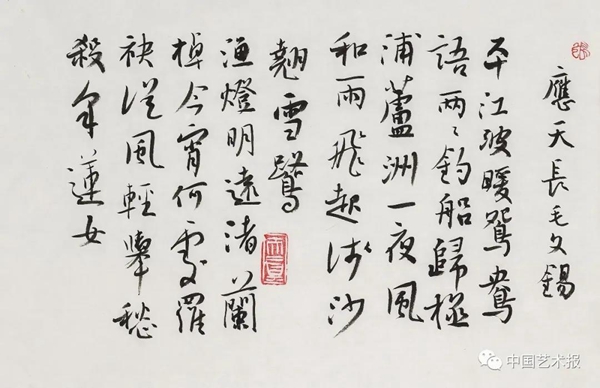 應天長毛文錫
平江波暖鴛鴦
語兩〻釣船歸極
浦蘆洲一夜風
和雨飛起淺沙
翹雪鷺
漁燈明遠渚蘭
棹今宵何處羅
袂從風輕舉愁
殺采蓮女
中国艺术报